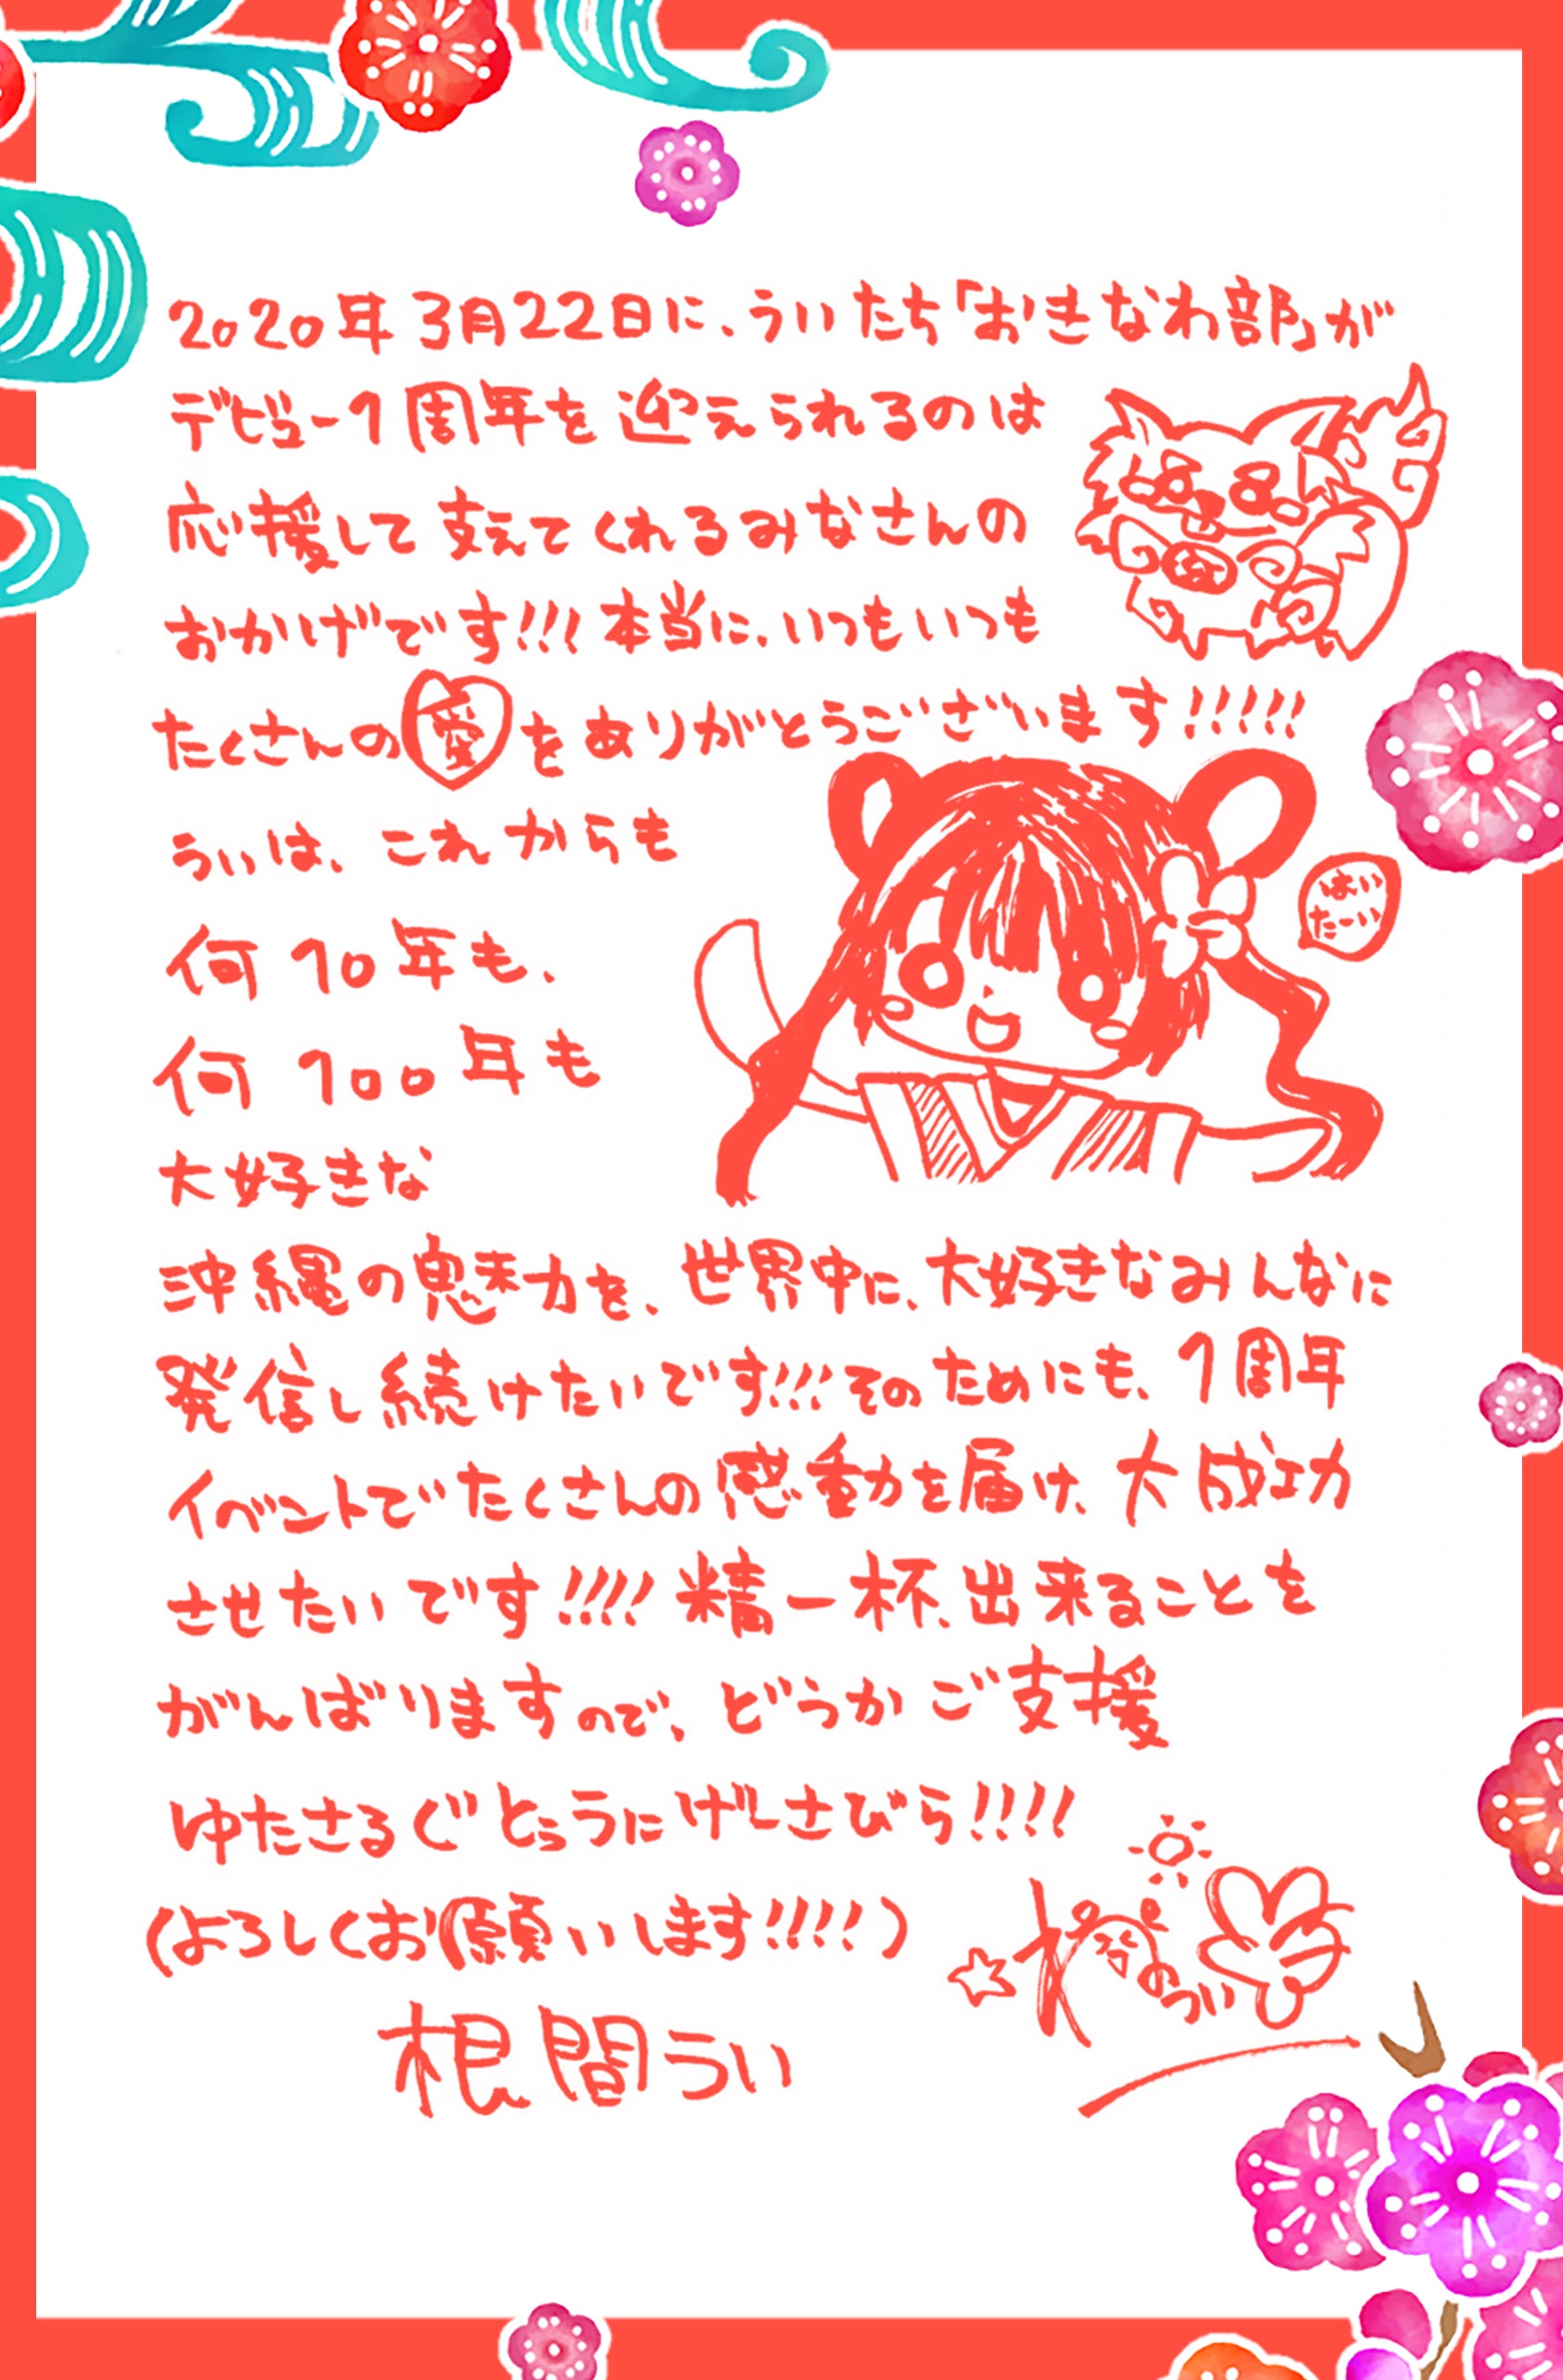 2020年3月22日に、ういたち「おきなわ部」が
デビュー1周年を迎えられるのは
応援して支えてくれるみなさんの
おかげです!!!本当に、いつもいつも
たくさんの愛をありがとうございます!!!!!
ういは、これからも
はい
たーい
何10年も、
何100年も
大好きな
沖縄の魅力を、世界中に、大好きなみんなに
発信し続けたいです!!!そのためにも、1周年
イベントでたくさんの感動を届け、大成功
させたいです!!!!精一杯、出来ることを
がんばりますので、どうかご支援
ゆたさるぐとぅうにげーさびら!!!!
(よろしくお願いします!!!!)
根間うい